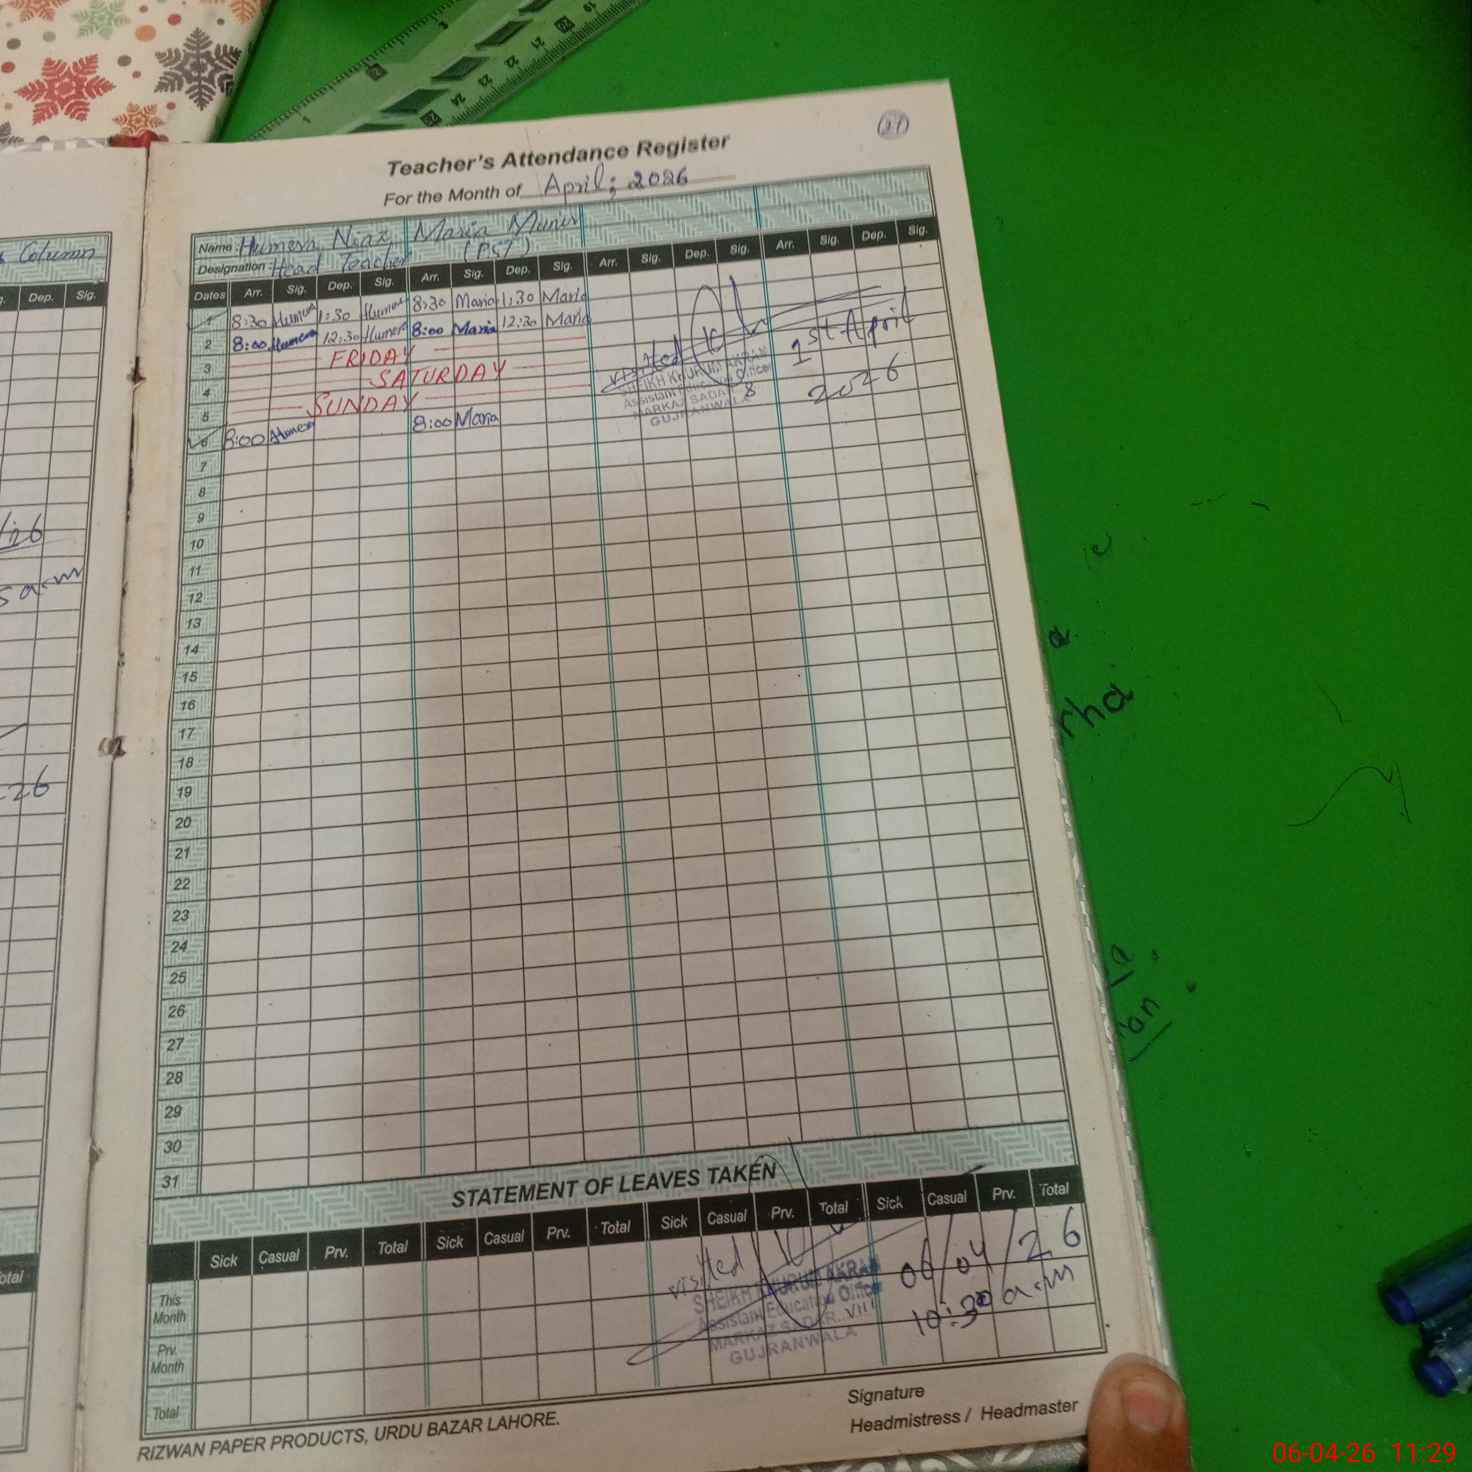 (21)
Teacher's Attendance Register
For the Month of April; 2026
Column
Name Humera Niaz Maria Munir
Designation Head Teacher (PST)
Dep. Sig.
Dates Arr. Sig. Dep. Sig. Arr. Sig. Dep. Sig. Arr. Sig. Dep. Sig. Arr. Sig. Dep. Sig.
1 8:30 Humera 1:30 Humera 8:30 Maria 1:30 Maria
2 8:00 Humera 12:30 Humera 8:00 Maria 12:30 Maria
3 FRIDAY
4 SATURDAY
5 SUNDAY
6 8:00 Humera 8:00 Maria
visited
1st April
2026
SHEIKH KHURUM AKRAM
Assistant Education Officer
MARKAZ SADAR
GUJRANWALA
7
8
9
10
11
12
13
14
15
16
17
18
19
20
21
22
23
24
25
26
27
28
29
30
31
STATEMENT OF LEAVES TAKEN
Sick Casual Prv. Total Sick Casual Prv. Total Sick Casual Prv. Total Sick Casual Prv. Total
This Month
Prv. Month
Total
visited
06/04/26
10:30 a.m
SHEIKH KHURUM AKRAM
Assistant Education Officer
MARKAZ SADAR. VIII
GUJRANWALA
Signature
Headmistress / Headmaster
RIZWAN PAPER PRODUCTS, URDU BAZAR LAHORE.
06-04-26 11:29